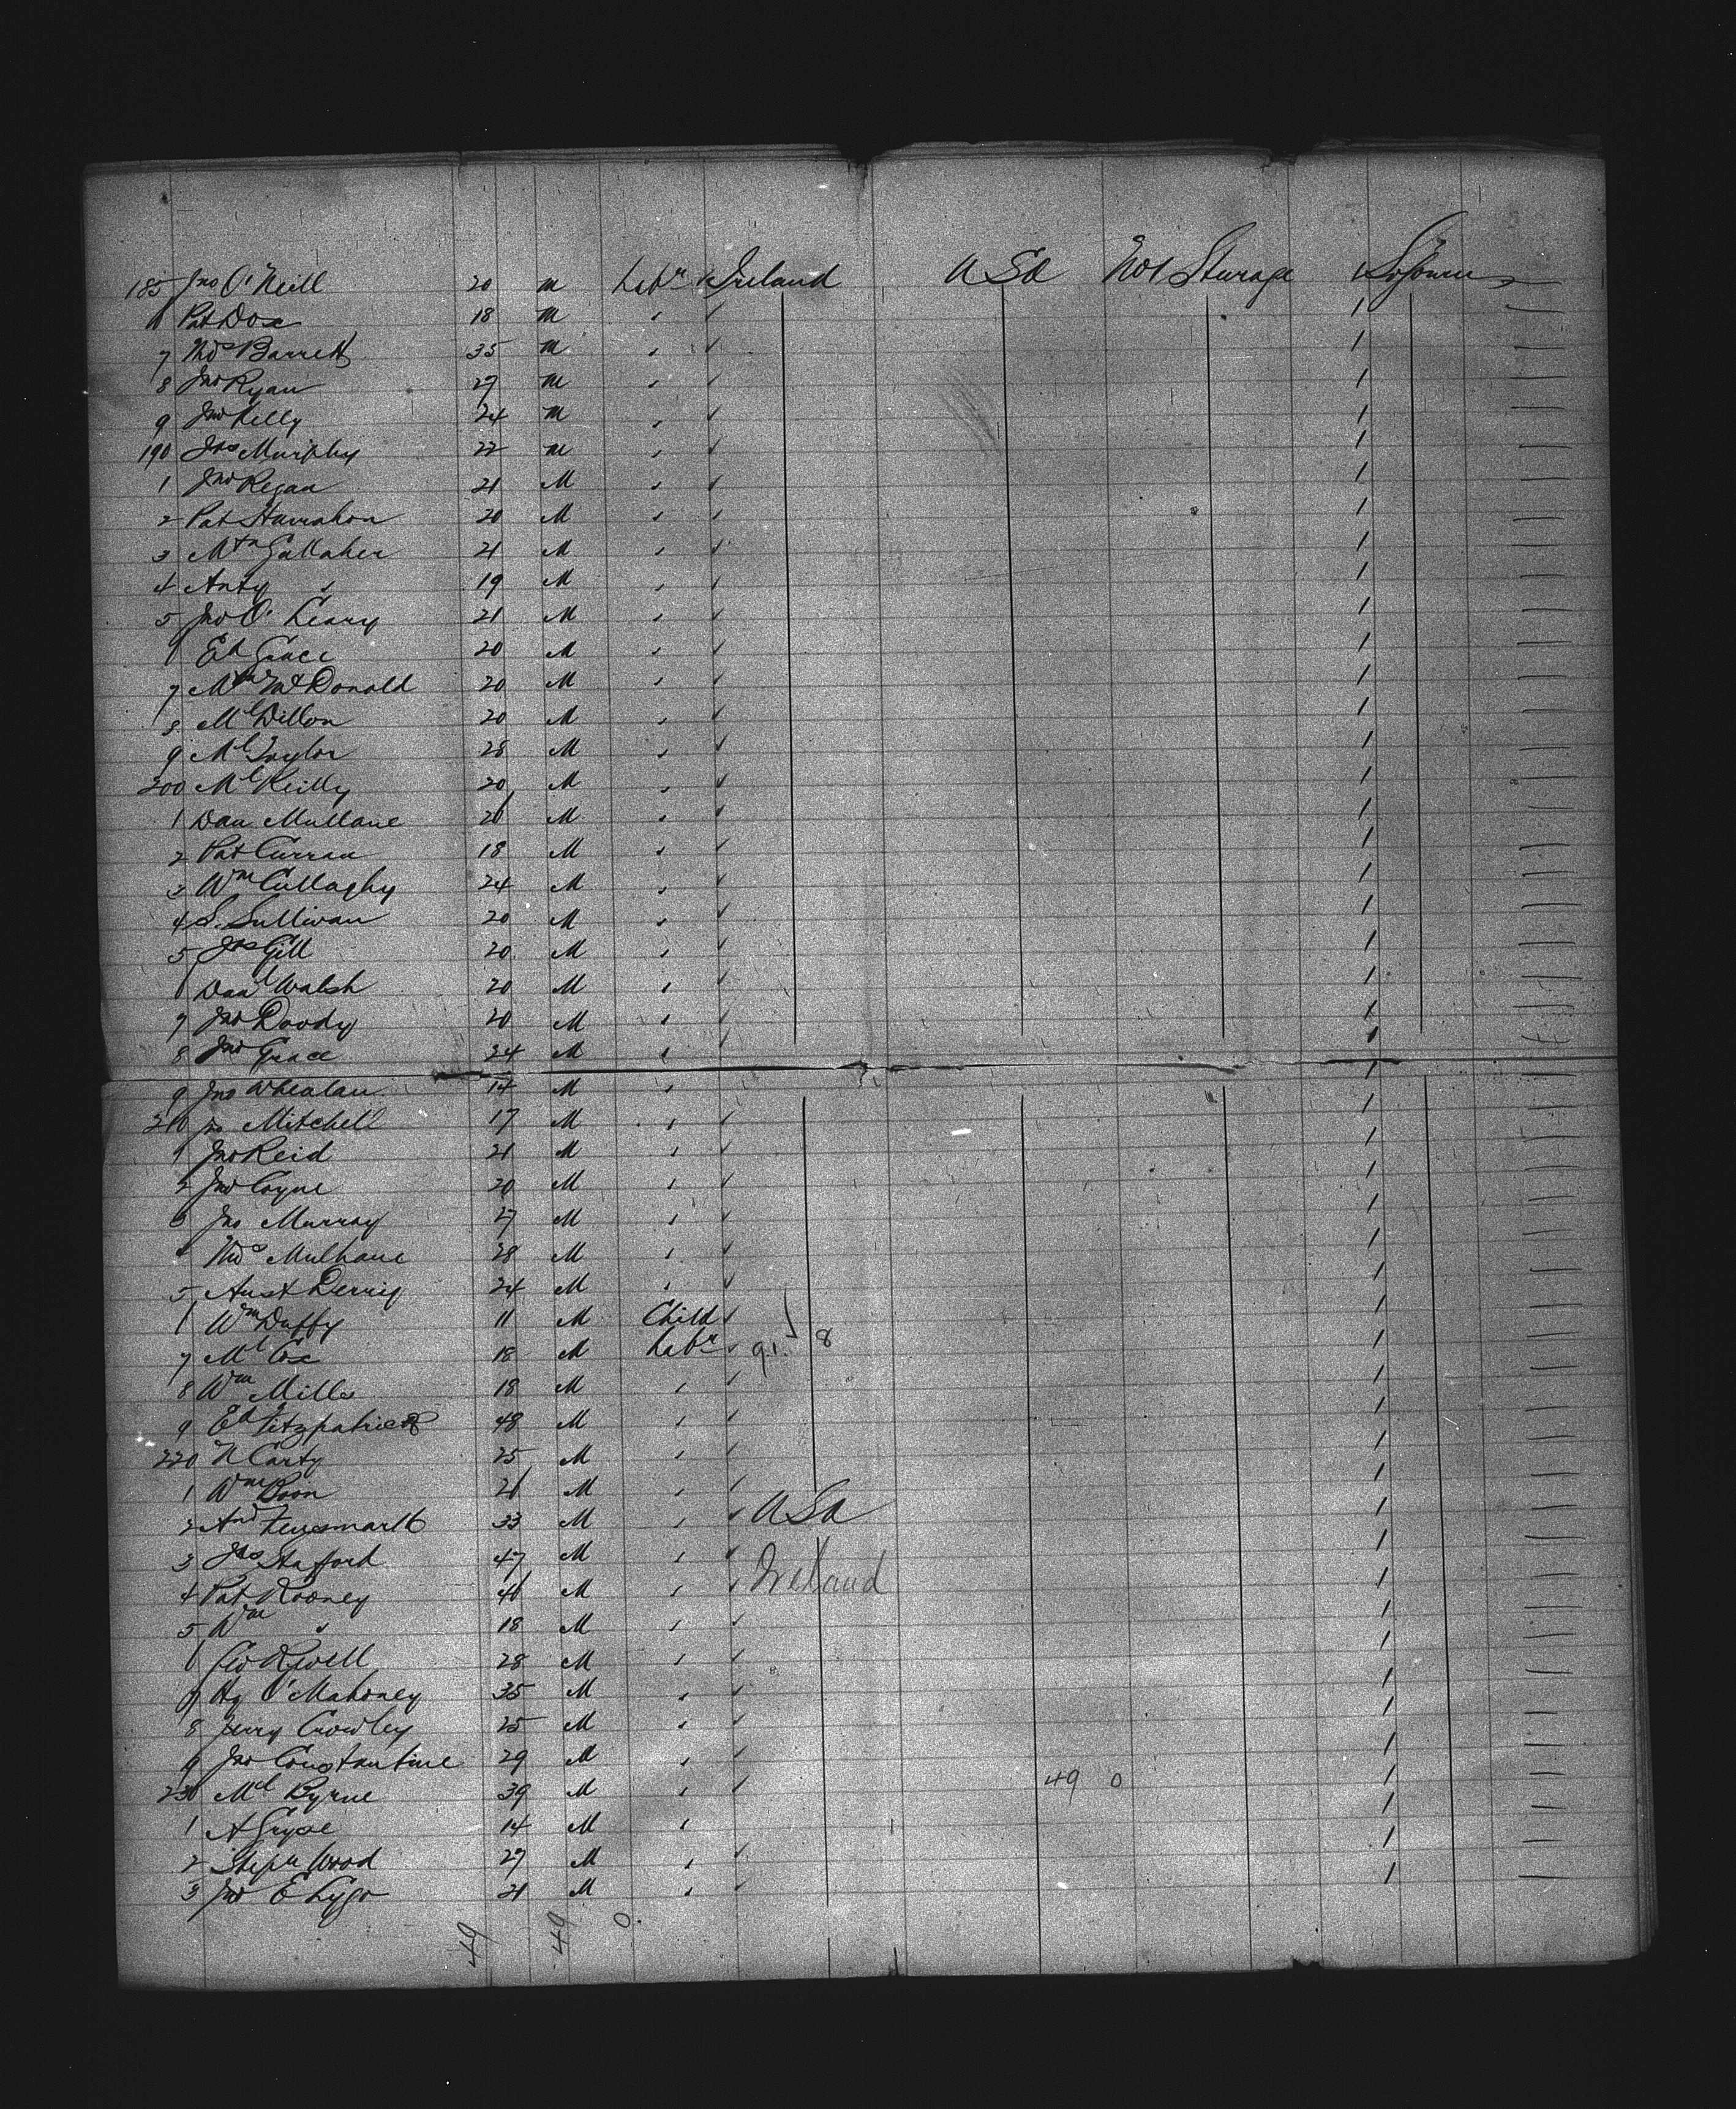 185 Jno O'Neill 20 M Labr Ireland USA No 1 Sojourn
6 Pat 18 M
7 Thos Barrett 35 M
8 Jno Ryan 27 M
9 Jno Kelly 24 M
190 Jas Murphy 22 M
1 Jno Regan 21 M
2 Pat Hanrahan 20 M
3 Mtn Gallaher 21 M
4 Anty " 19 M
5 Jno O'Leary 21 M
6 Ed Grace 20 M
7 McDonald 20 M
8 Ml Dillon 20 M
9 Ml Taylor 28 M
200 Ml Reilly 20 M
1 Dan Mullane M
2 Pat Curran 18 M
3 Wm Cullaghy 24 M
4 S. Sullivan 20 M
5 Jas Gill 20 M
6 Danl Walsh 20 M
7 Jno Doody 20 M
8 Jno Grace 24 M
9 Jno Whealan 14 M
210 Jno Mitchell 17 M
1 Jno Reid 21 M
2 Jno Coyne 20 M
3 Jno Murray 27 M
4 Thos Mulhane 28 M
5 Aust Derrig 24 M
6 Wm Duffy 11 M Child
7 Ml Cox 18 M Labr 8
8 Wm Mills 18 M
9 Ed Fitzpatrick 48 M
220 N Carty 25 M
1 Wm M
2 And 33 M USA
3 Jas Stafford 47 M Ireland
4 Pat Rooney M
5 Wm " 18 M
6 Geo 28 M
7 Hy O'Mahoney 35 M
8 Jerry Crowley 25 M
9 Jno Constantine 29 M
230 Ml Byrne 39 M 49 0
1 A 14 M
2 Stepn Wood 27 M
3 Jno E Lygo 21 M
49 49 0